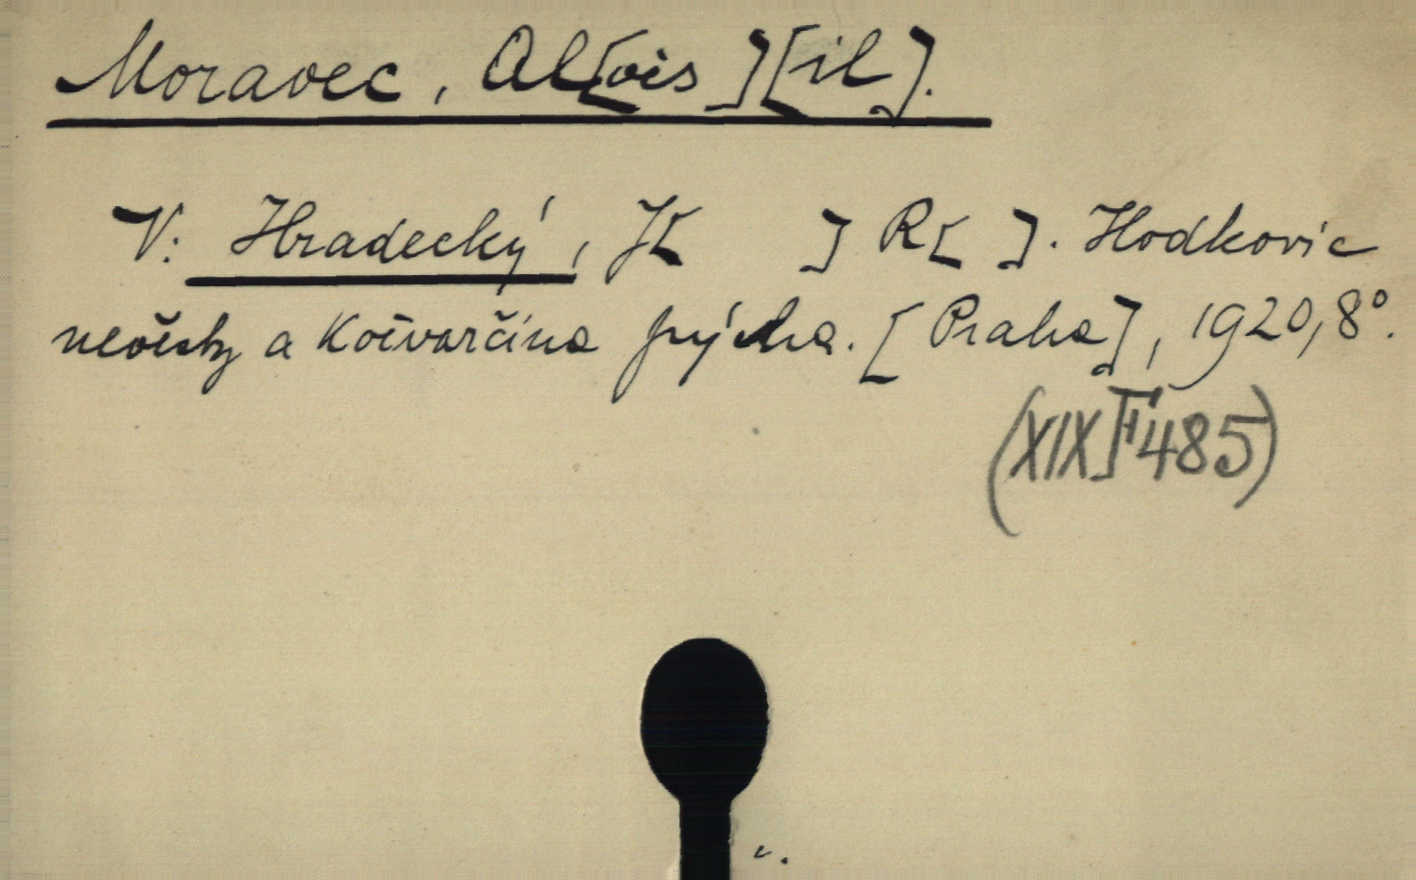 Moravec, Al[ois][il].
V. Hradecký, J[ ] R[ ]. Hodkovic
nevěsty a Kočvarčina pýcha. [Praha], 1920, 8°.
(XIX F 485)